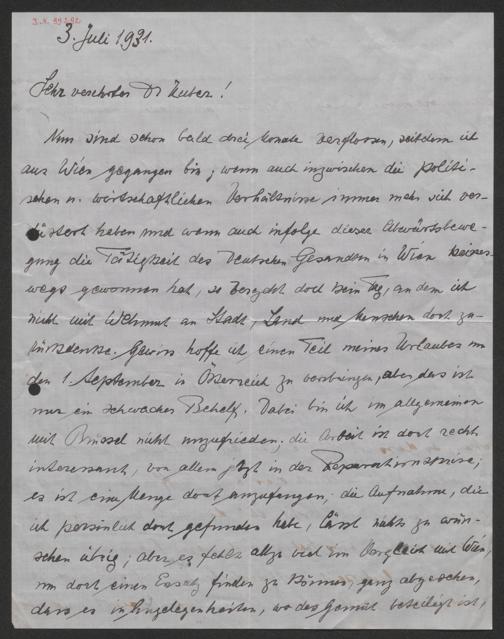 3. Juli 1931.
Sehr verehrter Dr !
Nun sind schon bald drei Monate verflossen, seitdem ich
aus Wien gegangen bin; wenn auch inzwischen die politi-
schen u. wirtschaftlichen Verhältnisse immer mehr sich ver-
düstert haben und wenn auch infolge dieser Abwärtsbewe-
gung die Tätigkeit des Deutschen Gesandten in Wien keines-
wegs gewonnen hat, so vergeht doch kein Tag, an dem ich
nicht mit Wehmut an Stadt, Land und Menschen dort zu-
rückdenke. Gewiss hoffe ich einen Teil meines Urlaubes um
den 1 September in Österreich zu verbringen, aber das ist
nur ein schwacher Behelf. Dabei bin ich im allgemeinen
mit Brüssel nicht unzufrieden; die Arbeit ist dort recht
interessant, vor allem jetzt in der Reparationskrise;
es ist eine Menge dort anzufangen; die Aufnahme, die
ich persönlich dort gefunden habe, lässt nichts zu wün-
schen übrig; aber es fehlt allzu viel im Vergleich mit Wien,
um dort einen Ersatz finden zu können, ganz abgesehen,
dass es in Angelegenheiten, wo das Gemüt beteiligt ist,